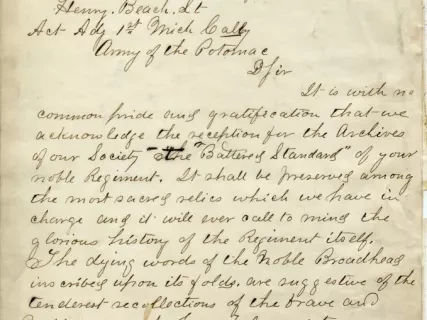 Henry. Beach. Lt
Act Adj 1st Mich Cally
Army of the Potomac
D Sir
It is with no
common pride and gratification that we
acknowledge the reception for the Archives
of our Society - the "Battered Standard" of your
noble Regiment. It shall be preserved among
the most sacred relics which we have in
charge and it will ever call to mind the
glorious history of the Regiment itself.
The dying words of the Noble Broadhead
inscribed upon its folds, are suggestive of the
tenderest recollections of the brave and